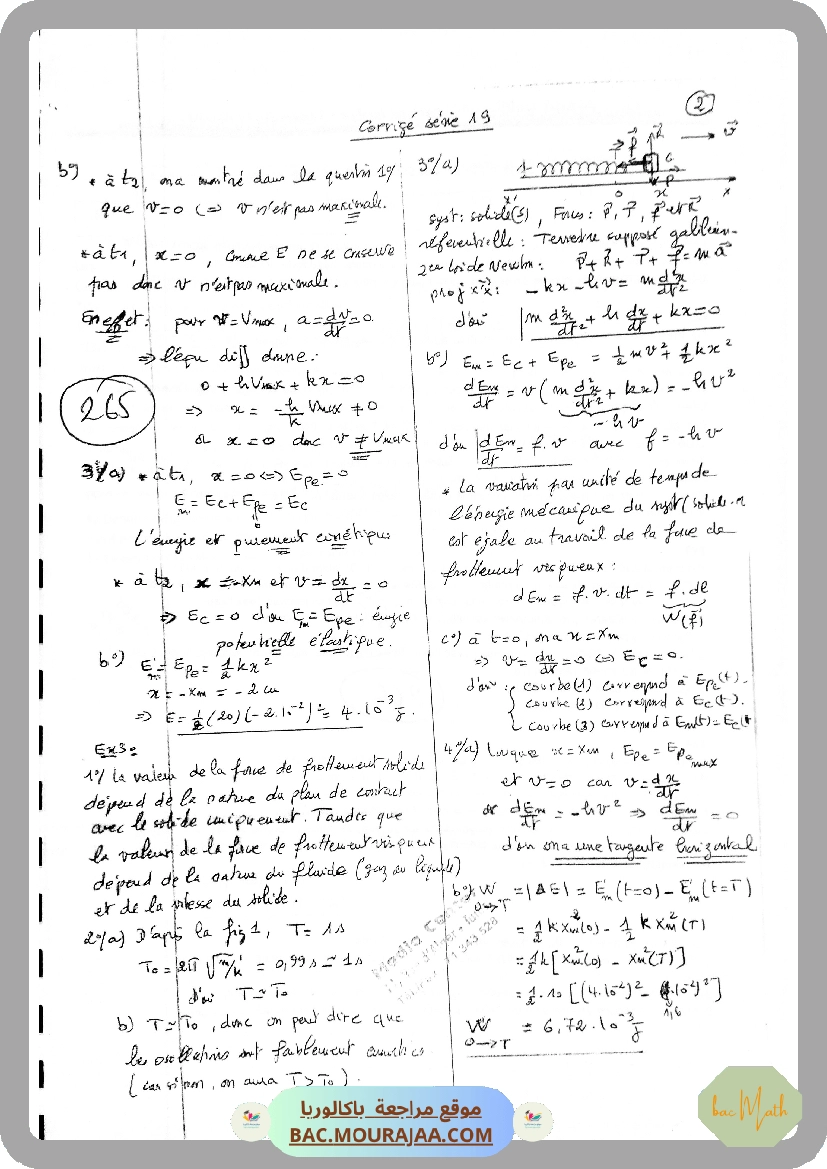 2
Corrigé série 19
b°) * à t2, on a montré dans la question 1°)
que v=0 <=> v n'est pas maximale.
* à t1, x=0, comme E ne se conserve
pas donc v n'est pas maximale.
En effet: pour v=Vmax, a=dv/dt=0
=> l'équ diff donne:
0 + hVmax + kx = 0
265
=> x = -h/k Vmax ≠ 0
or x=0 donc v ≠ Vmax
3°/a) * à t1, x=0 <=> Epe=0
Em = Ec+Epe = Ec
0
L'énergie est purement cinétique
* à t2, x = -Xm et v = dx/dt = 0
=> Ec=0 d'où Em=Epe: énergie
potentielle élastique.
b°) Em = Epe = 1/2 kx²
x = -Xm = -2 cm
=> E = 1/2 (20)(-2.10⁻²)² = 4.10⁻³ J.
Ex3:
1°/ La valeur de la force de frottement solide
dépend de la nature du plan de contact
avec le solide uniquement. Tandis que
la valeur de la force de frottement visqueux
dépend de la nature du fluide (gaz ou liquide)
et de la vitesse du solide.
2°/a) D'après la fig 1, T = 1s
To = 2π √m/k = 0,99 s ≃ 1s
d'où T ≃ To
b) T ≃ To, donc on peut dire que
les oscillations sont faiblement amorties
(car si non, on aura T > To).
3°/a)
R
f
v
G
P
x'
o
x
x
syst: solide(s), Forces: P, T, f et R
référentielle: Terrestre supposé galiléen.
2em loi de Newton: P + R + T + f = m a
proj x'x: -kx - hv = m d²x/dt²
d'où m d²x/dt² + h dx/dt + kx = 0
b°) Em = Ec + Epe = 1/2 mv² + 1/2 kx²
dEm/dt = v (m d²x/dt² + kx) = -hv²
-hv
d'où dEm/dt = f.v avec f = -hv
* La variation par unité de temps de
l'énergie mécanique du syst (solide
est égale au travail de la force de
frottement visqueux:
dEm = f.v.dt = f.dl
W(f)
c°) à t=0, on a x = Xm
=> v = dx/dt = 0 <=> Ec = 0.
d'où: courbe(1) correspond à Epe(t).
courbe (2) correspond à Ec(t).
courbe (3) correspond à Em(t) = Ec(t
4°/a) lorsque x = Xm, Epe = Epe max
et v=0 car v = dx/dt
or dEm/dt = -hv² => dEm/dt = 0
d'où on a une tangente horizontal
b°) W = |ΔE| = Em(t=0) - Em(t=T)
0->T
= 1/2 k Xm²(0) - 1/2 k Xm²(T)
= 1/2 k [Xm²(0) - Xm²(T)]
= 1/2 . 10 [(4.10⁻²)² - (.10⁻²)²]
1,6
W = 6,72.10⁻³ J
0->T
موقع مراجعة باكالوريا
BAC.MOURAJAA.COM
bac Math